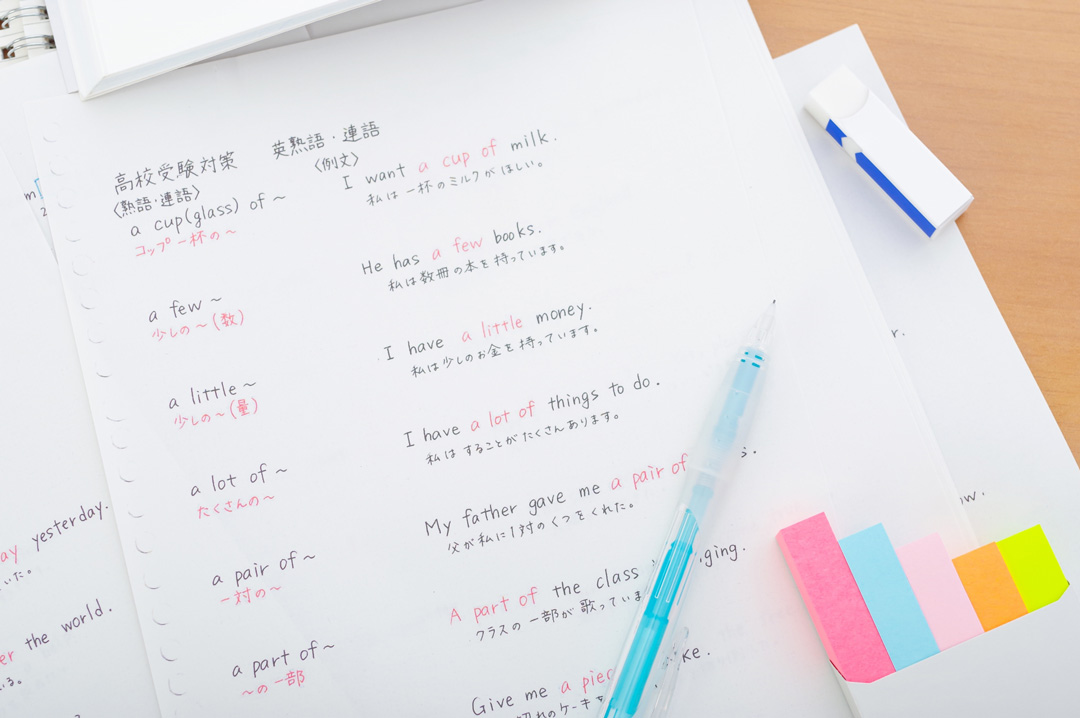 高校受験対策 英熟語・連語
〈熟語・連語〉 〈例文〉
a cup(glass) of ~
コップ一杯の~
I want a cup of milk.
私は一杯のミルクがほしい。
a few ~
少しの~(数)
He has a few books.
私は数冊の本を持っています。
a little ~
少しの~(量)
I have a little money.
私は少しのお金を持っています。
a lot of ~
たくさんの~
I have a lot of things to do.
私はすることがたくさんあります。
a pair of ~
一対の~
My father gave me a pair of
父が私に1対のくつをくれた。
a part of ~
~の一部
A part of the class
クラスの一部が歌ってい
Give me a
のケーキ
yesterday.
the world.